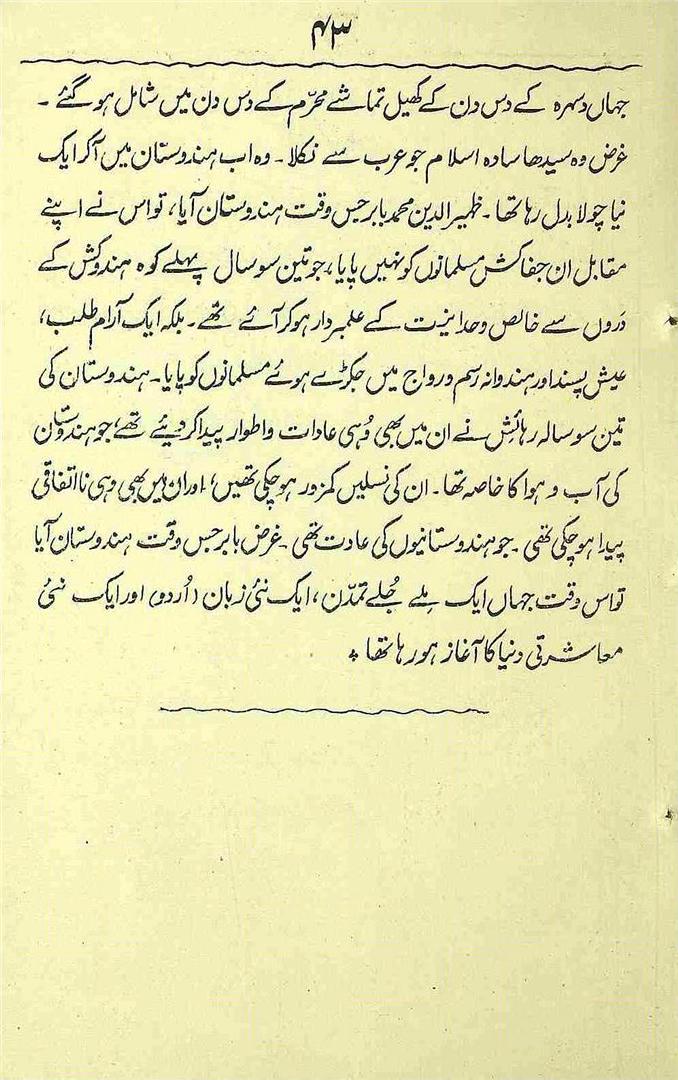 ۴۳
جہاں دسہرہ کے دس دن کے کھیل تماشے محرّم کے دس دن میں شامل ہو گئے ۔
غرض وہ سیدھا سادہ اسلام جو عرب سے نکلا ۔ وہ اب ہندوستان میں آکر ایک
نیا چولا بدل رہا تھا ۔ ظہیر الدین محمد بابر جس وقت ہندوستان آیا، تو اس نے اپنے
مقابل ان جفاکش مسلمانوں کو نہیں پایا، جو تین سو سال پہلے کوہ ہندوکش کے
دروں سے خالص وحدانیت کے علمبردار ہو کر آئے تھے ۔ بلکہ ایک آرام طلب،
عیش پسند اور ہندوانہ رسم و رواج میں جکڑے ہوئے مسلمانوں کو پایا ۔ ہندوستان کی
تین سو سالہ رہائش نے ان میں بھی وُہی عادات و اطوار پیدا کر دیئے تھے، جو ہندوستان
کی آب و ہوا کا خاصہ تھا ۔ ان کی نسلیں کمزور ہو چکی تھیں، اور ان میں بھی وہی نا اتفاقی
پیدا ہو چکی تھی ۔ جو ہندوستانیوں کی عادت تھی ۔ غرض بابر جس وقت ہندوستان آیا
تو اس وقت جہاں ایک مِلے جُلے تمدّن، ایک نئی زبان (اُردو) اور ایک نئی
معاشرتی دنیا کا آغاز ہو رہا تھا ۔